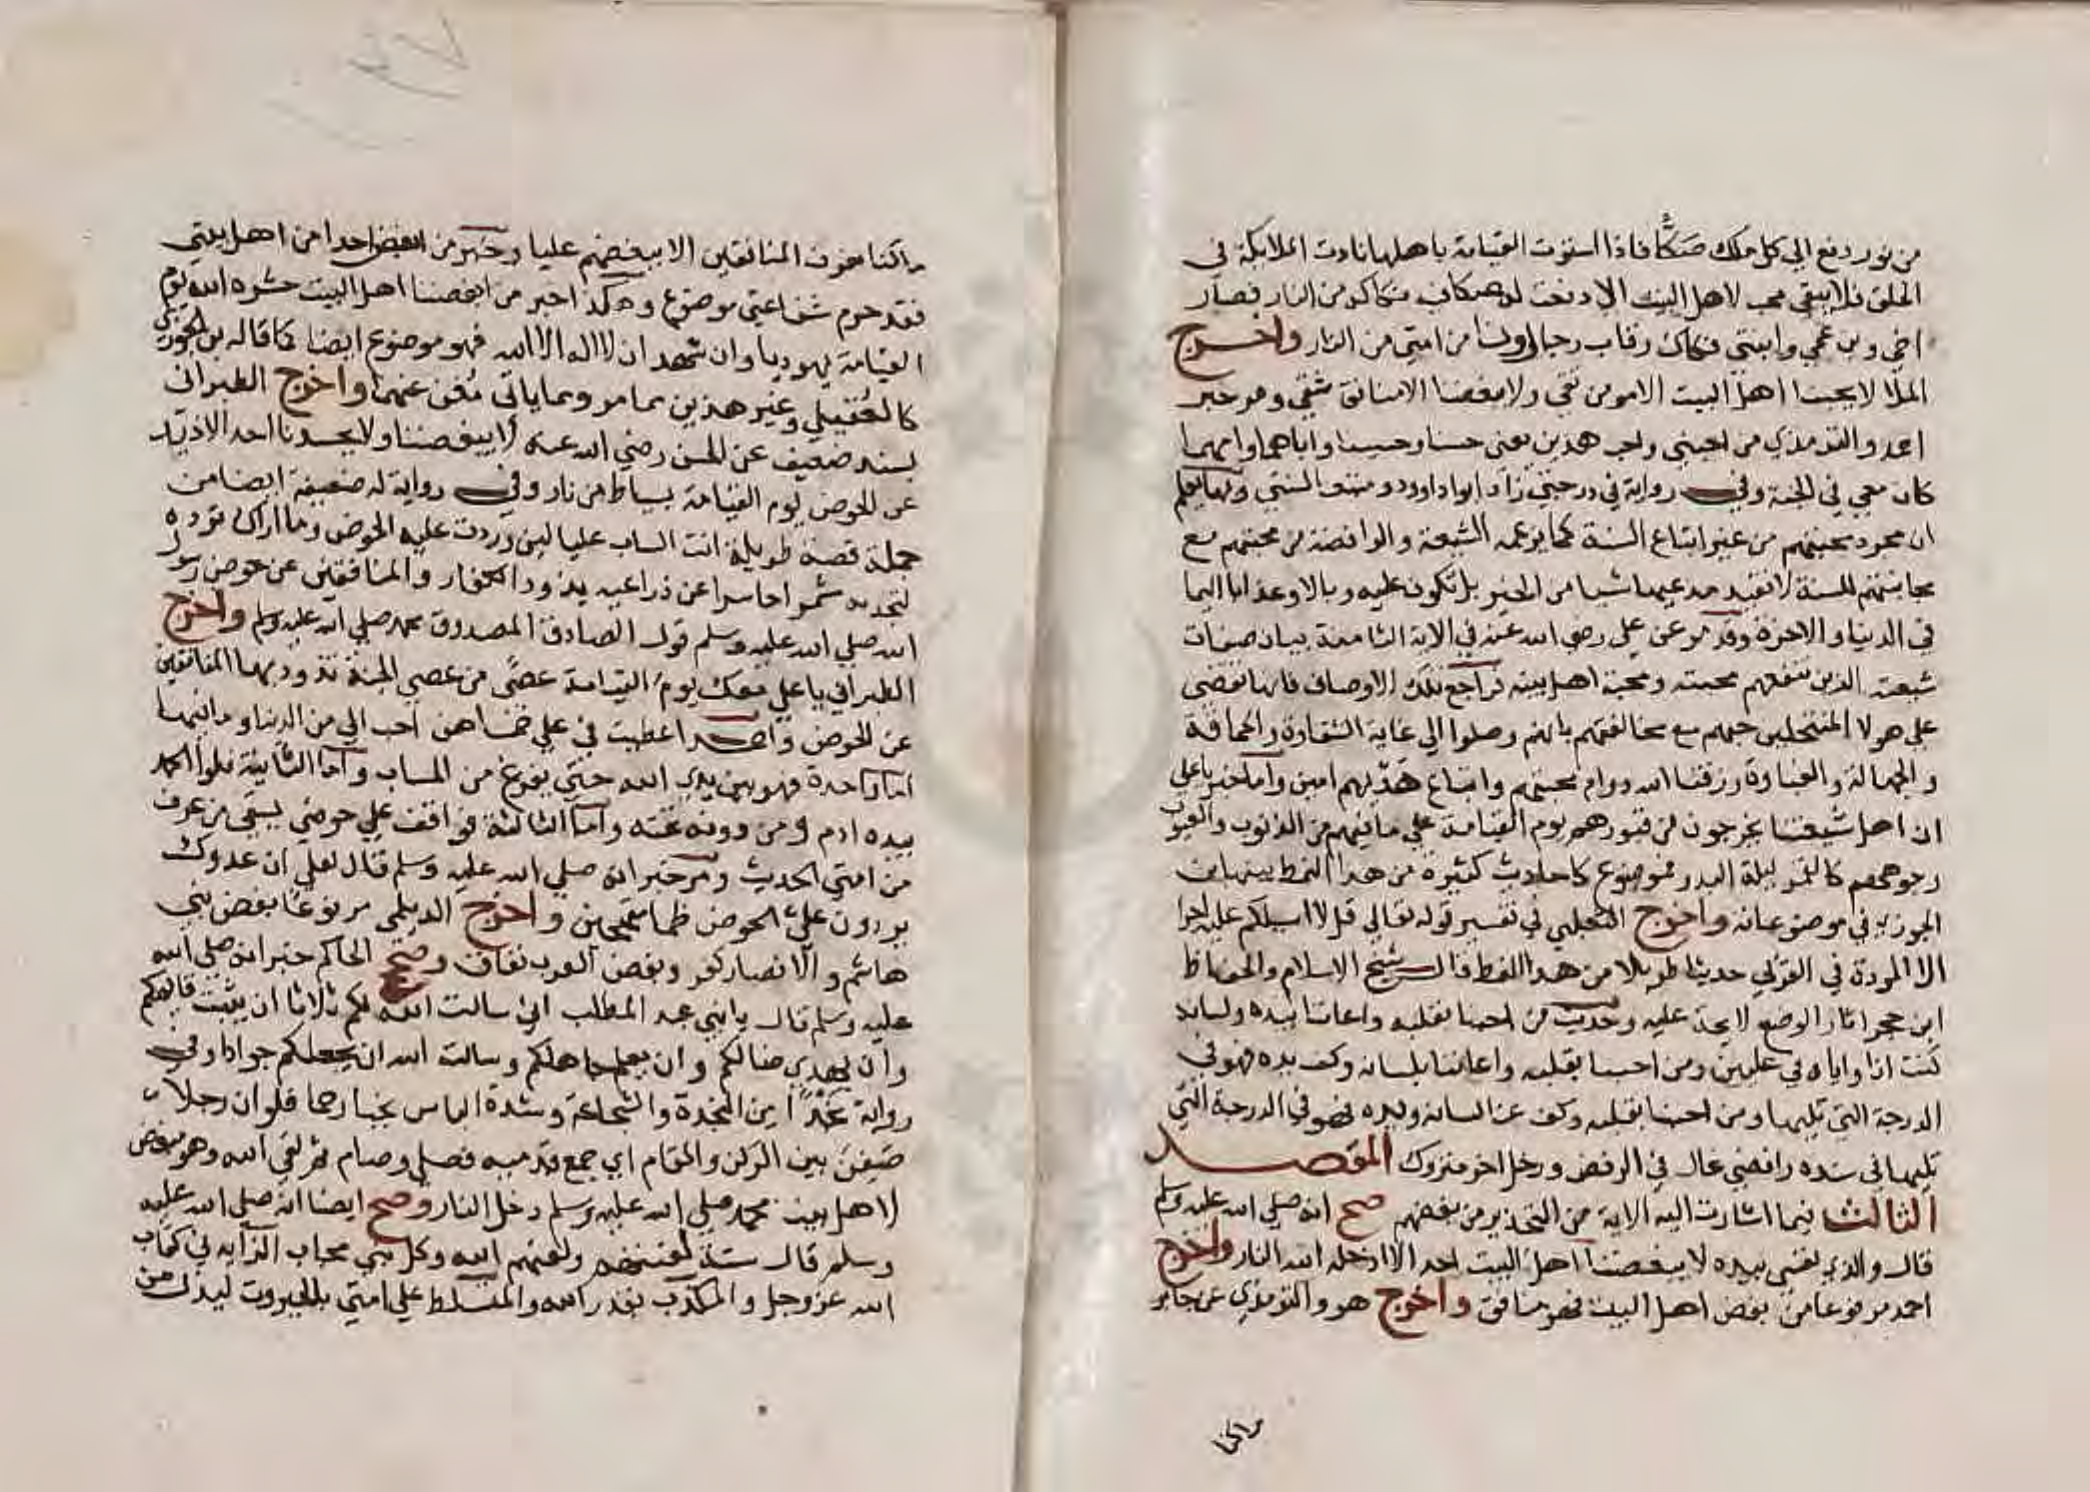 من نور دفع الي كل ملك صكا فاذا استوت القيامة باهلها نادت الملايكة في
الخلق فلا يبقي محب لاهل البيت الا دفعت له صكا فيه فكاكه من النار فصار
اخي وبن عمي وابنتي فكاك رقاب رجال ونسا من امتي من النار واخرج
الملا لا يحبنا اهل البيت الا مومن تقي ولا يبغضنا الا منافق شقي ومر خبر
احمد والترمذي من احبني واحب هذين يعني حسنا وحسينا واباهما وامهما
كان معي في الجنة وفي رواية في درجتي زاد ابو داوود ومتبعا لسنتي وبها يعلم
ان مجرد محبتهم من غير اتباع السنة كما يزعمه الشيعة والرافضة من محبتهم مع
مجانبتهم للسنة لا تفيد مدعيها شيا من الخير بل تكون عليه وبالا وعذابا اليما
في الدنيا والاخرة وقد مر عن علي رضي الله عنه في الاية الثامنة بيان صفات
شيعته الذين تنفعهم محبته ومحبة اهل بيته فراجع تلك الاوصاف فانها تقضي
علي هولا المنتحلين حبهم مع مخالفتهم بانهم وصلوا الي غاية الشقاوة والحماقة
والجهالة والغباوة ورزقنا الله دوام محبتهم واتباع هديهم امين واما خبر يا علي
ان اهل شيعتنا يخرجون من قبورهم يوم القيامة علي ما فيهم من الذنوب والعيوب
وجوههم كالقمر ليلة البدر فموضوع كاحاديث كثيرة من هذا النمط بينها ابن
الجوزي في موضوعاته واخرج الثعلبي في تفسير قوله تعالي قل لا اسيلكم عليه اجرا
الا المودة في القربي حديثا طويلا من هذا النمط قال شيخ الاسلام والحفاظ
ابن حجر اثار الوضع لايحة عليه وحديث من احبنا بقلبه واعاننا بيده ولسانه
كنت انا واياه في عليين ومن احبنا بقلبه واعاننا بلسانه وكف يده فهو في
الدرجة التي تليها ومن احبنا بقلبه وكف عنا لسانه ويده فهو في الدرجة التي
تليها في سنده رافضي غال في الرفض ورجل اخر متروك المقصد
الثالث فيما اشارت اليه الاية من التحذير من بغضهم صح انه صلي الله عليه وسلم
قال والذي نفسي بيده لا يبغضنا اهل البيت احد الا ادخله الله النار واخرج
احمد مرفوعا من بغض اهل البيت فهو منافق واخرج هو والترمذي عن جابر
ما كنا نعرف المنافقين الا ببغضهم عليا وخبر من ابغض احدا من اهل بيتي
فقد حرم شفاعتي موضوع وهكذا خبر من ابغضنا اهل البيت حشره الله يوم
القيامة يهوديا وان شهد ان لا اله الا الله فهو موضوع ايضا كما قاله بن الجوزي
كالعقيلي وغير هذين مما مر ومما ياتي مغن عنهما واخرج الطبراني
بسند ضعيف عن الحسن رضي الله عنه لا يبغضنا ولا يحسدنا احد الا ذيد
عن الحوض يوم القيامة بسياط من نار وفي رواية له ضعيفة ايضا من
جملة قصة طويلة انت الساب عليا لين وردت عليه الحوض وما اراك ترده
لتجدنه شمرا حاسرا عن ذراعيه يذود الكفار والمنافقين عن حوض رسول
الله صلي الله عليه وسلم قول الصادق المصدوق محمد صلي الله عليه وسلم واخرج
الطبراني يا علي معك يوم القيامة عصي من عصي الجنة تذود بها المنافقين
عن الحوض واحمد اعطيت في علي خمسا هن احب الي من الدنيا وما فيها
اما واحدة فهو بين يدي الله حتي يفرغ من الحساب واما الثانية فلوا الحمد
بيده ادم ومن دونه تحته واما الثالثة فواقف علي حوضي يسقي من عرف
من امتي الحديث ومر خبر انه صلي الله عليه وسلم قال لعلي ان عدوك
يردون علي الحوض ظما مقمحين واخرج الديلمي مرفوعا بغض بني
هاشم والانصار كفر وبغض العرب نفاق وصح الحاكم خبر انه صلي الله
عليه وسلم قال يا بني عبد المطلب اني سالت الله لكم ثلاثا ان يثبت قايمكم
وان يهدي ضالكم وان يعلم جاهلكم وسالت الله ان يجعلكم جوادا وفي
رواية نجدا من النجدة والشجاعة وشدة الباس نجبا رحما فلو ان رجلا
صفن بين الركن والمقام اي جمع قدميه فصلي وصام ثم لقي الله وهو مبغض
لاهل بيت محمد صلي الله عليه وسلم دخل النار وصح ايضا انه صلي الله عليه
وسلم قال ستة لعنتهم ولعنهم الله وكل نبي مجاب الزايد في كتاب
الله عز وجل والمكذب بقدر الله والمتسلط علي امتي بالجبروت ليذل من
ما كنا